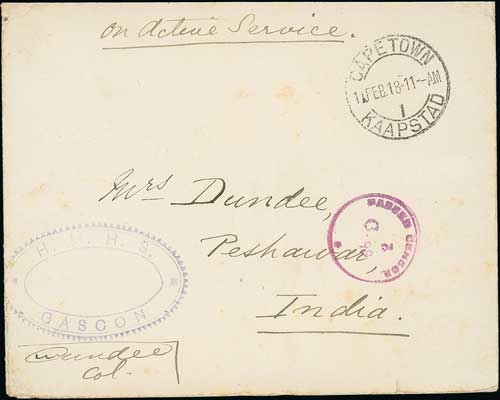 on Active Service.
CAPETOWN
FEB.18-11-AM
1
KAAPSTAD
Mrs Dundee,
Peshawar,
India.
PASSED CENSOR
2
H.M.H.S.
GASCON
Dundee
Col.